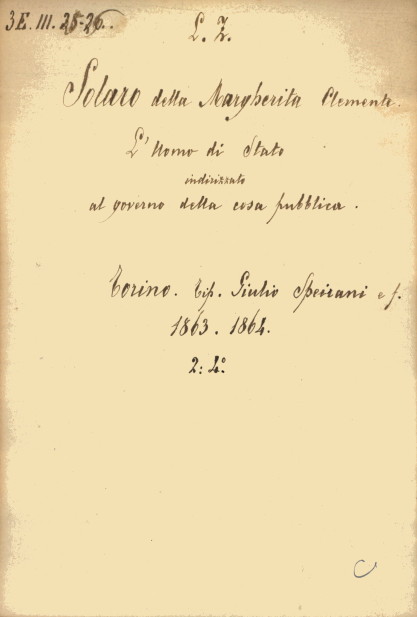 3E. III. 25-26.
L. Z.
Solaro della Margherita Clemente.
L'Uomo di Stato
indirizzato
al governo della cosa pubblica.
Torino. Tip. Giulio Speirani e f.
1863. 1864.
2: 4º
C